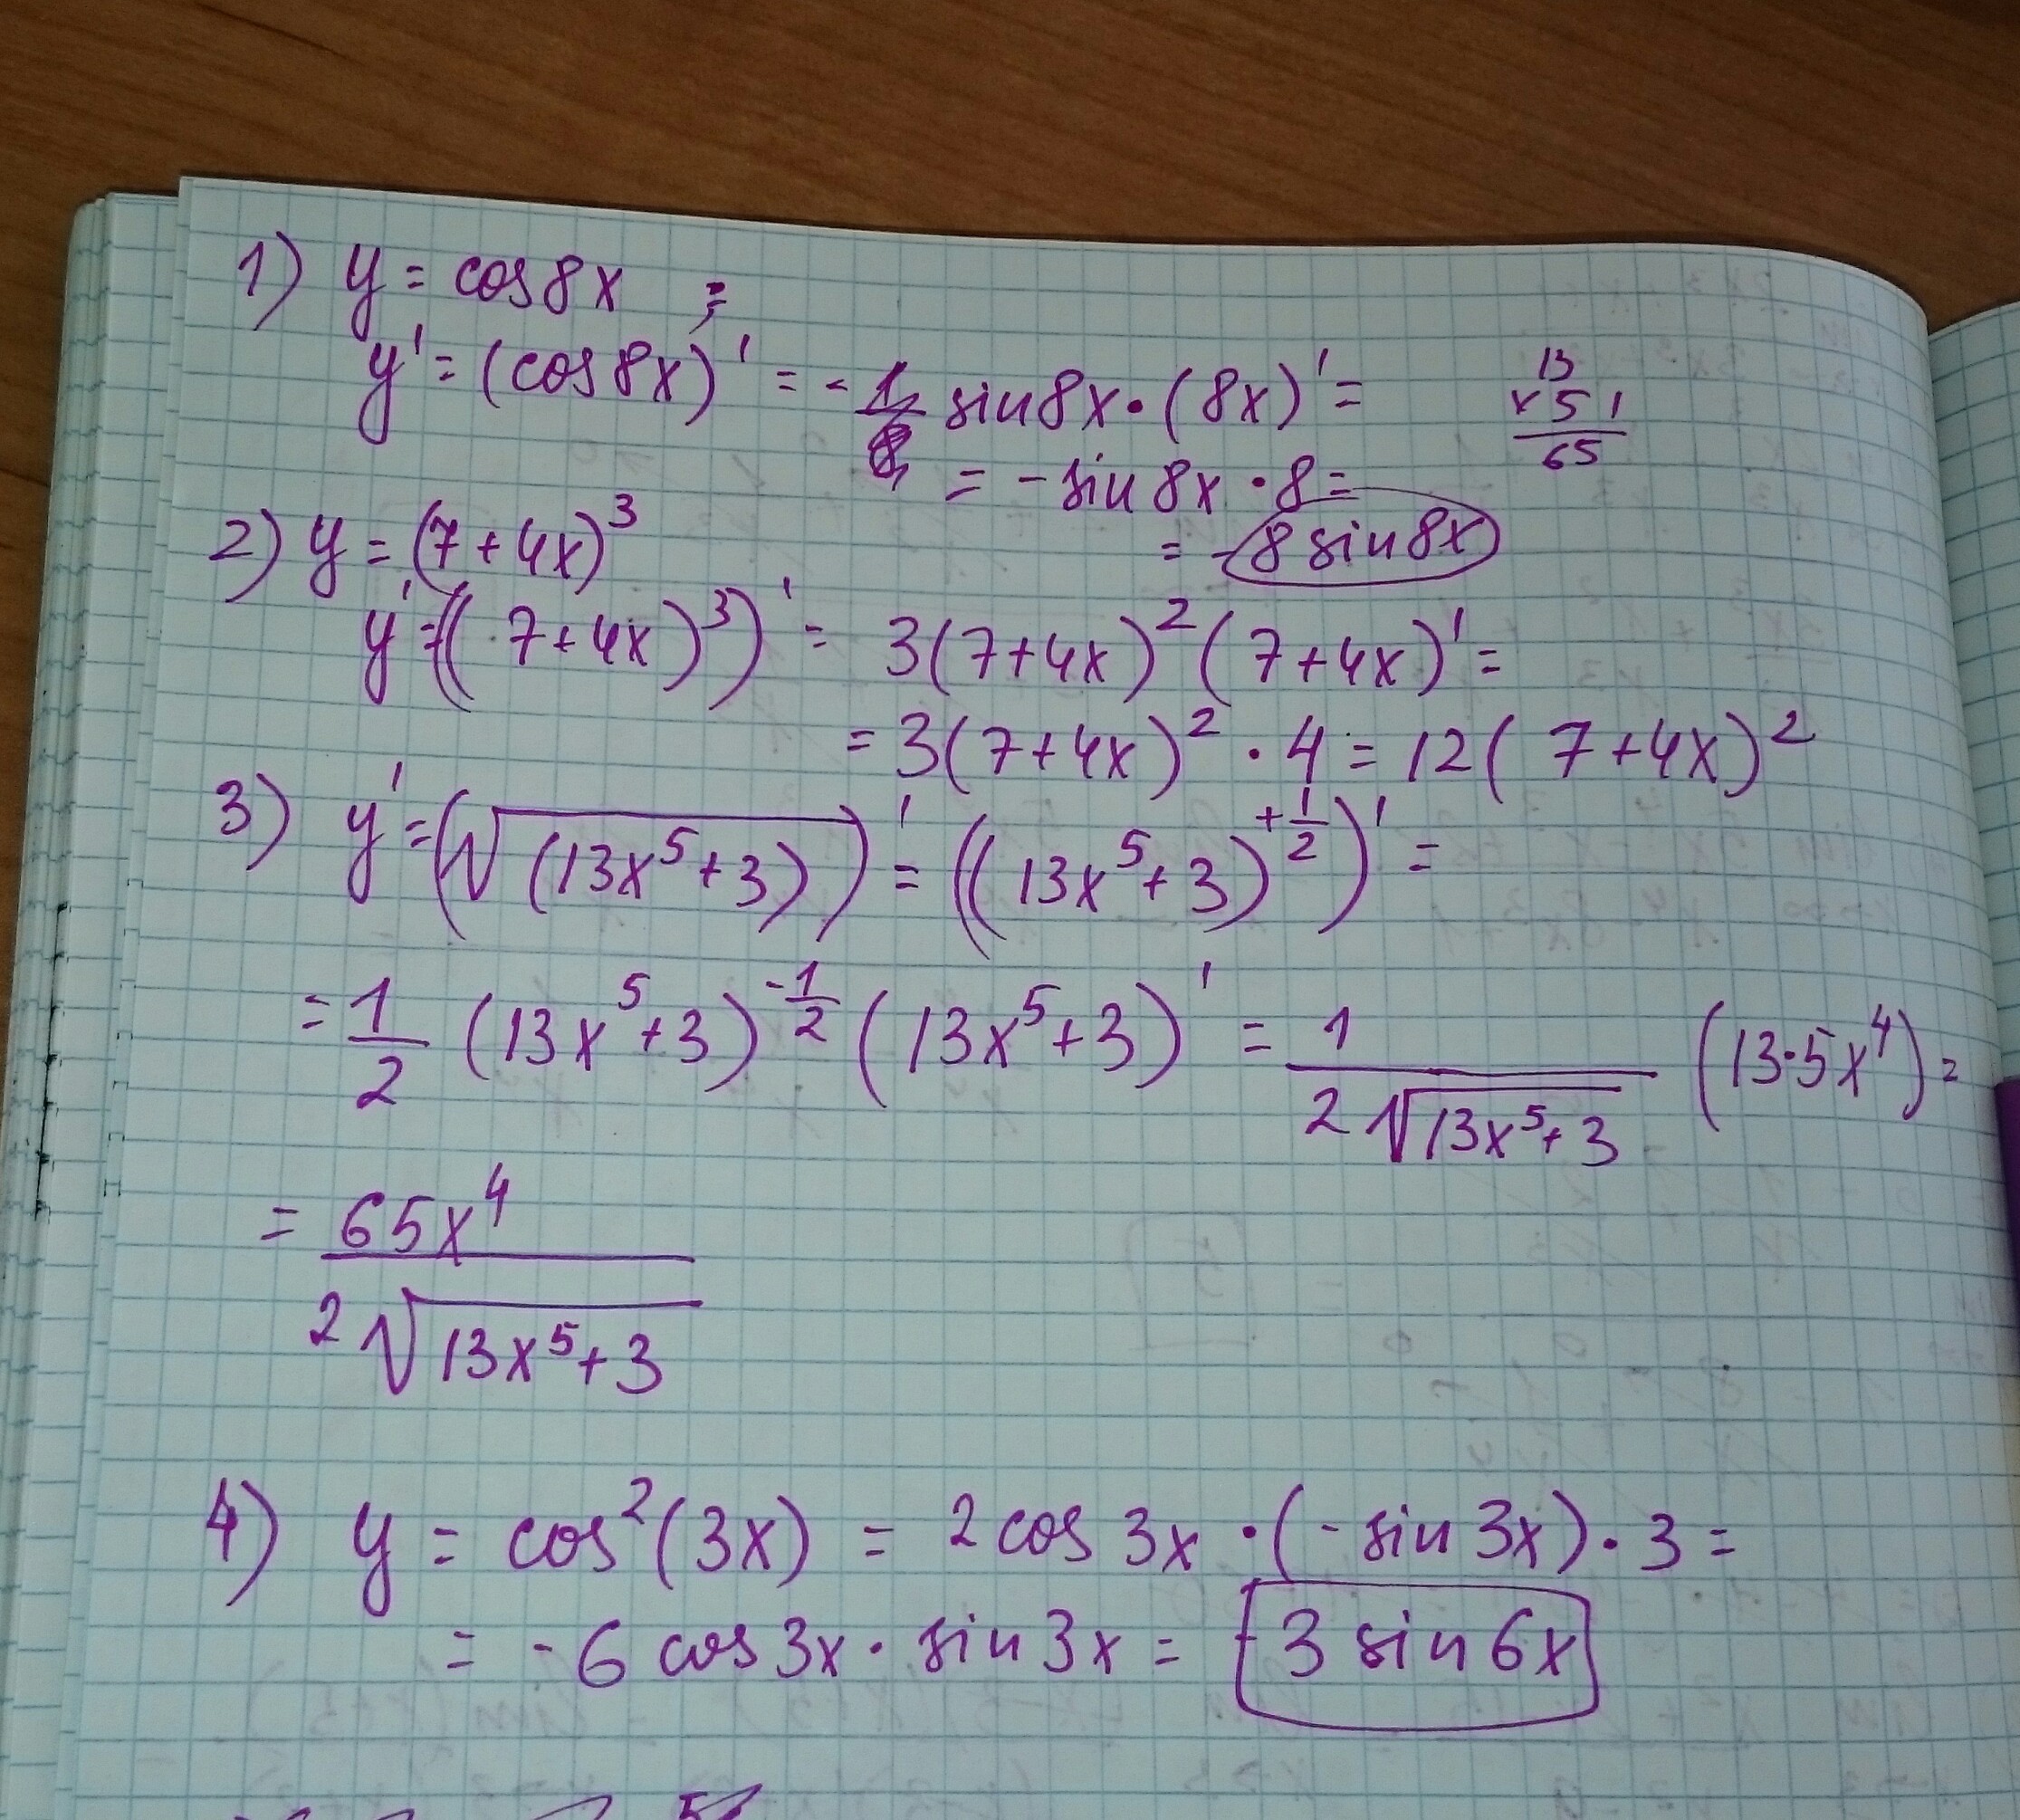 1) y = cos 8x ;
y' = (cos 8x)' = - sin 8x · (8x)' =
= - sin 8x · 8 =
= - 8 sin 8x
13
× 5 1
65
2) y = (7 + 4x)³
y' = ((7 + 4x)³)' = 3(7 + 4x)² (7 + 4x)' =
= 3(7 + 4x)² · 4 = 12(7 + 4x)²
3) y' = (√(13x⁵ + 3))' = ((13x⁵ + 3)^{+1/2})' =
= 1/2 (13x⁵ + 3)^{-1/2} (13x⁵ + 3)' = 1/(2√(13x⁵ + 3)) (13·5x⁴) =
= 65x⁴/(2√(13x⁵ + 3))
4) y = cos²(3x) = 2 cos 3x · (- sin 3x) · 3 =
= - 6 cos 3x · sin 3x = - 3 sin 6x